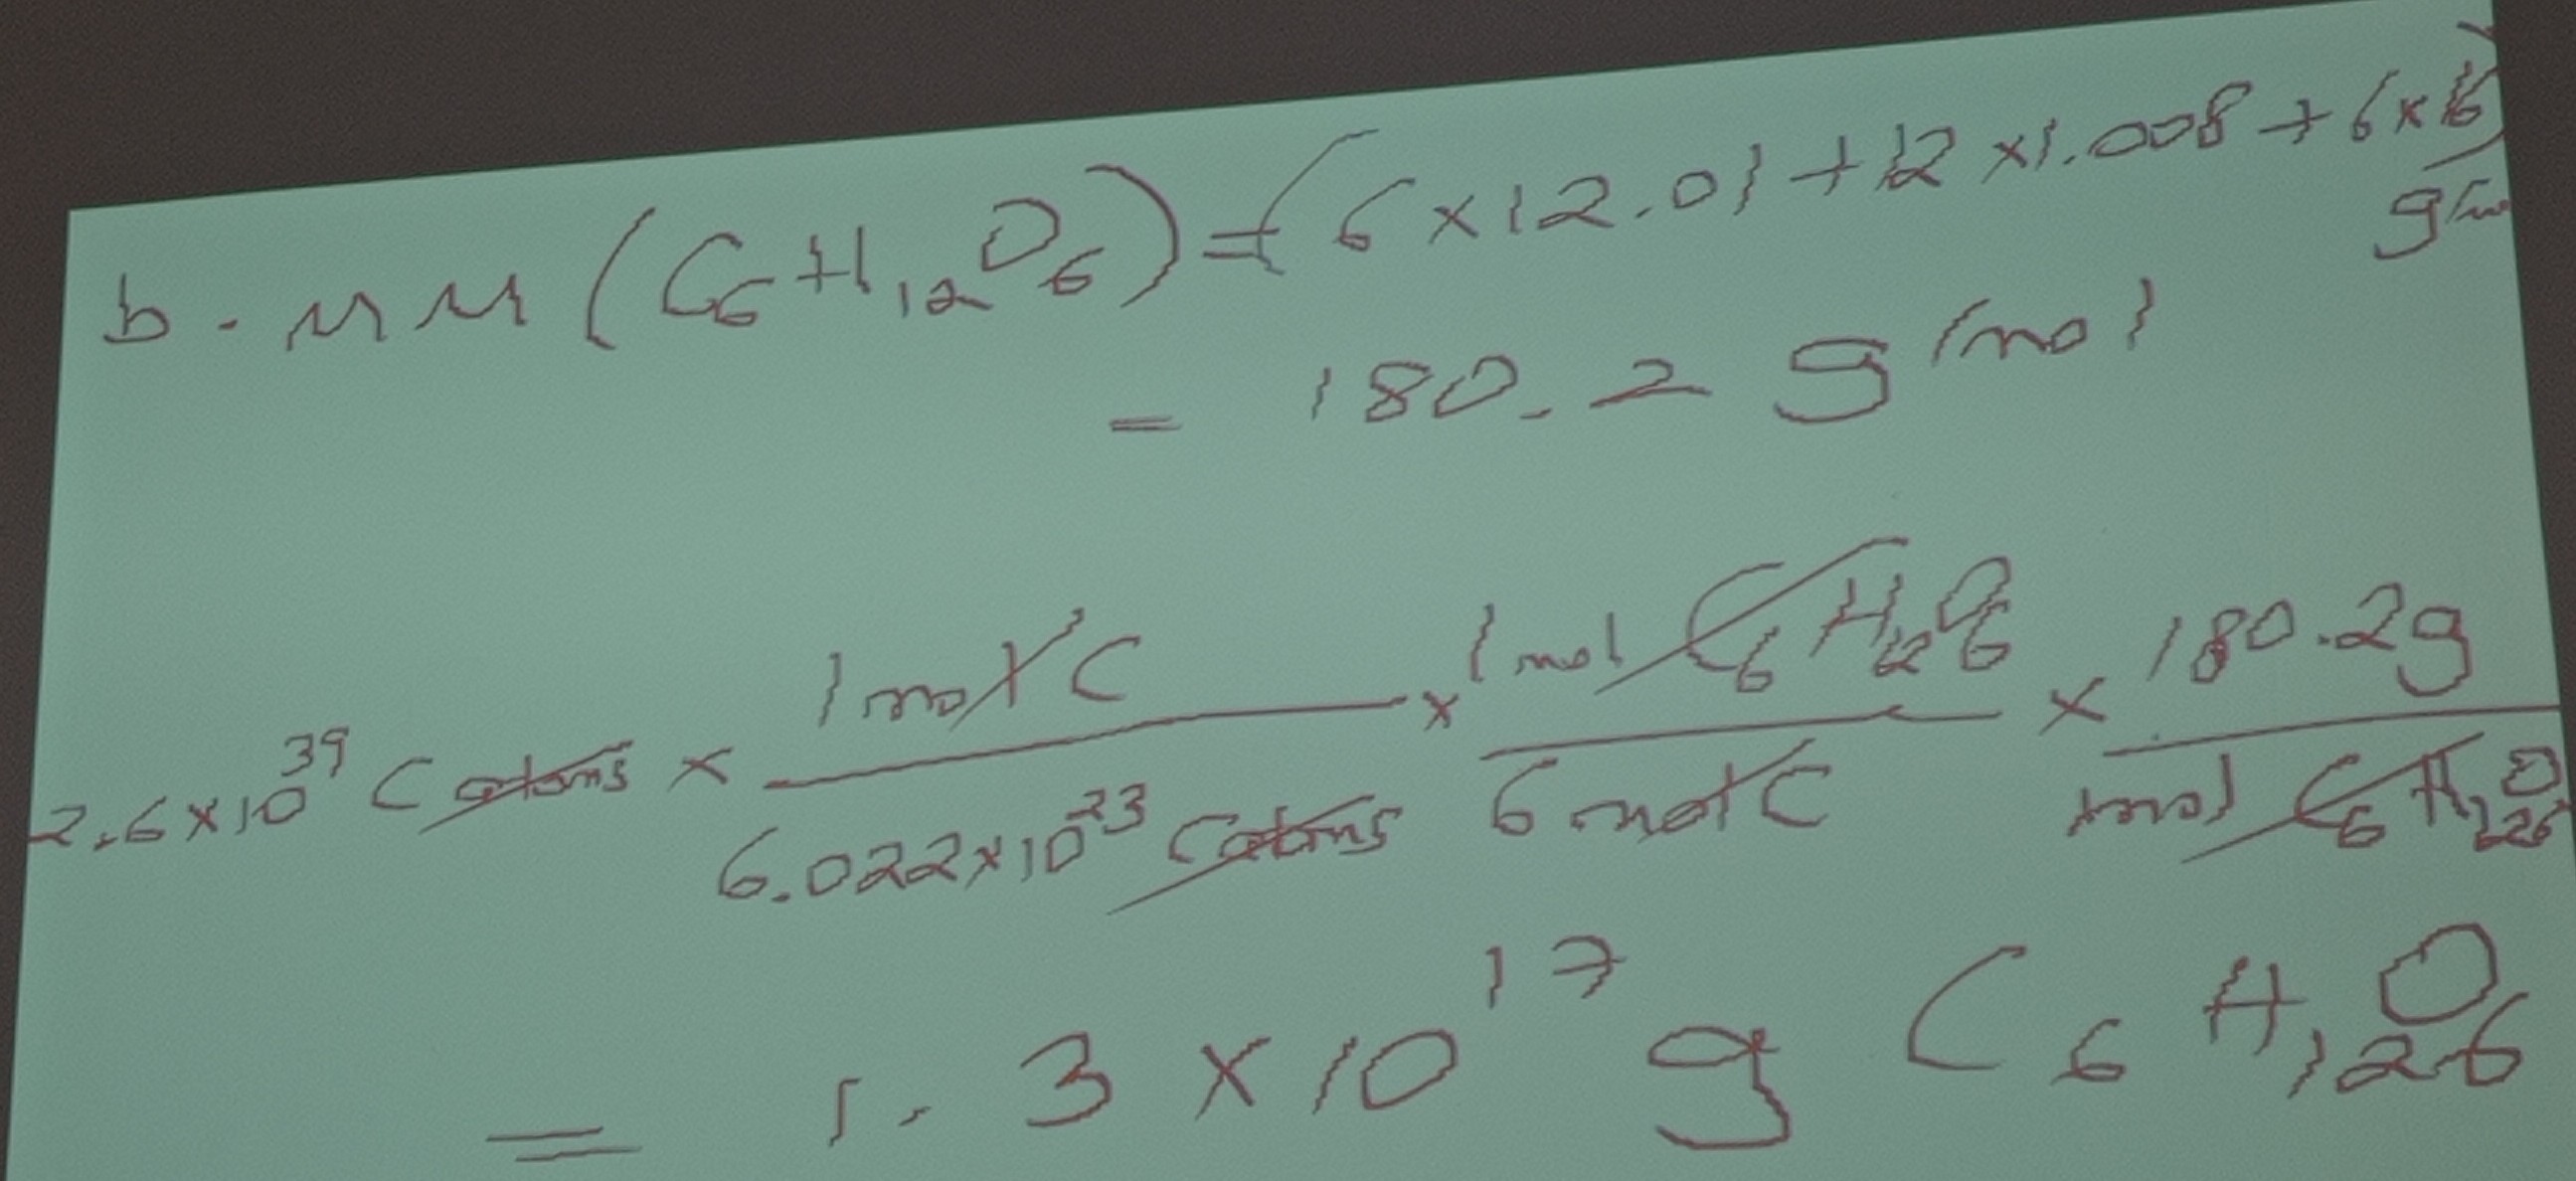 b. MM (C₆H₁₂O₆) = (6 × 12.01 + 12 × 1.008 + 6 × 16)
g/mo
= 180.2 g/mol
2.6 × 10³⁹ C atoms × 1 mol C / 6.022 × 10²³ C atoms × 1 mol C₆H₁₂O₆ / 6 mol C × 180.2 g / 1 mol C₆H₁₂O₆
= 1.3 × 10¹⁷ g C₆H₁₂O₆